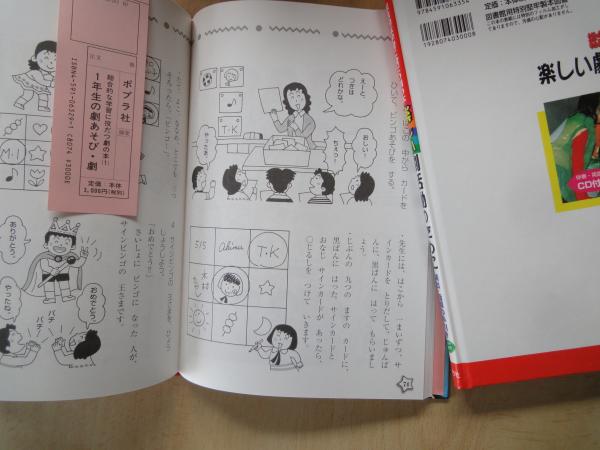 はこの 中から カードを
ひいて、ビンゴあそびを する。
えーと、
つぎは
どれかな。
おしい!
ちぇっ!
やったあ!
T・K
・先生には、はこから 一まいずつ、サ
インカードを とりだして、じゅんば
んに、黒ばんに はって もらいまし
ょう。
・じぶんの 九つの ますの カードに、
黒ばんに はった、サインカードと
おなじ サインカードが あったら、
○じるしを つけて いきます。
5/5
Akina
T・K
木村
76
4 サインビンゴの 王さまを ひょう
しょうしよう。
「おめでとう!」
さいしょに ビンゴに なった 人が、
サインビンゴの 王さまです。
ありがとう。
おめでとう。
やったな。
パチ
パチ
M・I
ポプラ社
注文
冊
総合的な学習に役だつ劇の本(1)
1年生の劇あそび・劇
定価 本体
3,000円(税別)
ISBN4-591-06529-1 C8074 ¥3000E
9784591063354
1928074030008
定価・本体
図書館用特別堅牢製本図書
楽しい劇
CD付